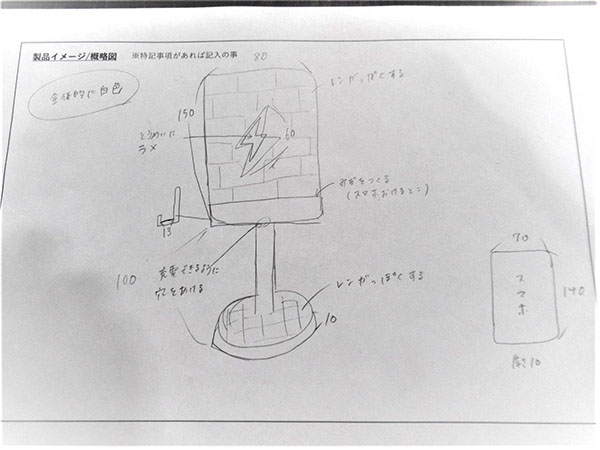 製品イメージ/概略図 ※特記事項があれば記入の事
80
全体的に白色
レンガっぽくする
150
とうめいに
ラメ
60
みぞをつくる
(スマホおけるとこ)
13
100
充電できるように
穴をあける
レンガっぽくする
10
70
スマホ
140
厚さ10